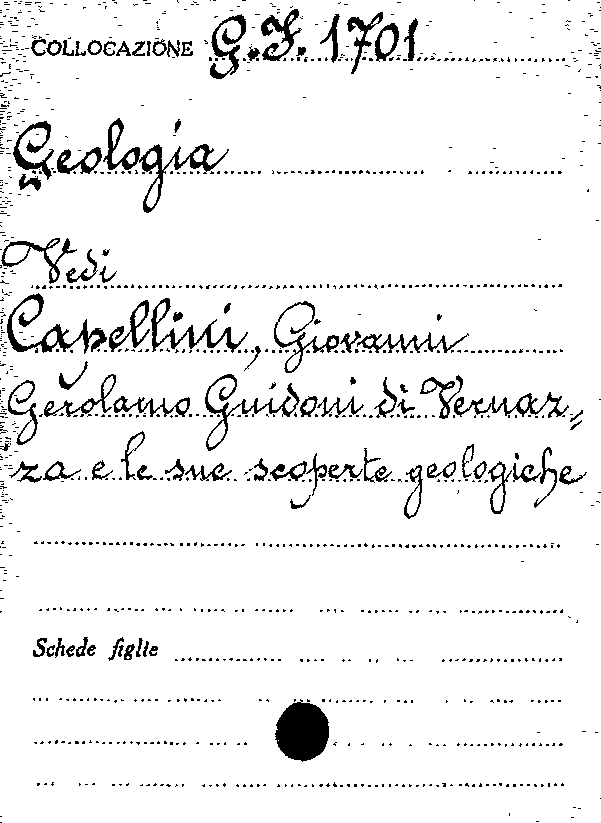 COLLOCAZIONE G.F. 1701
Geologia
Vedi
Capellini, Giovanni
Gerolamo Guidoni di Vernaz=
za e le sue scoperte geologiche
Schede figlie